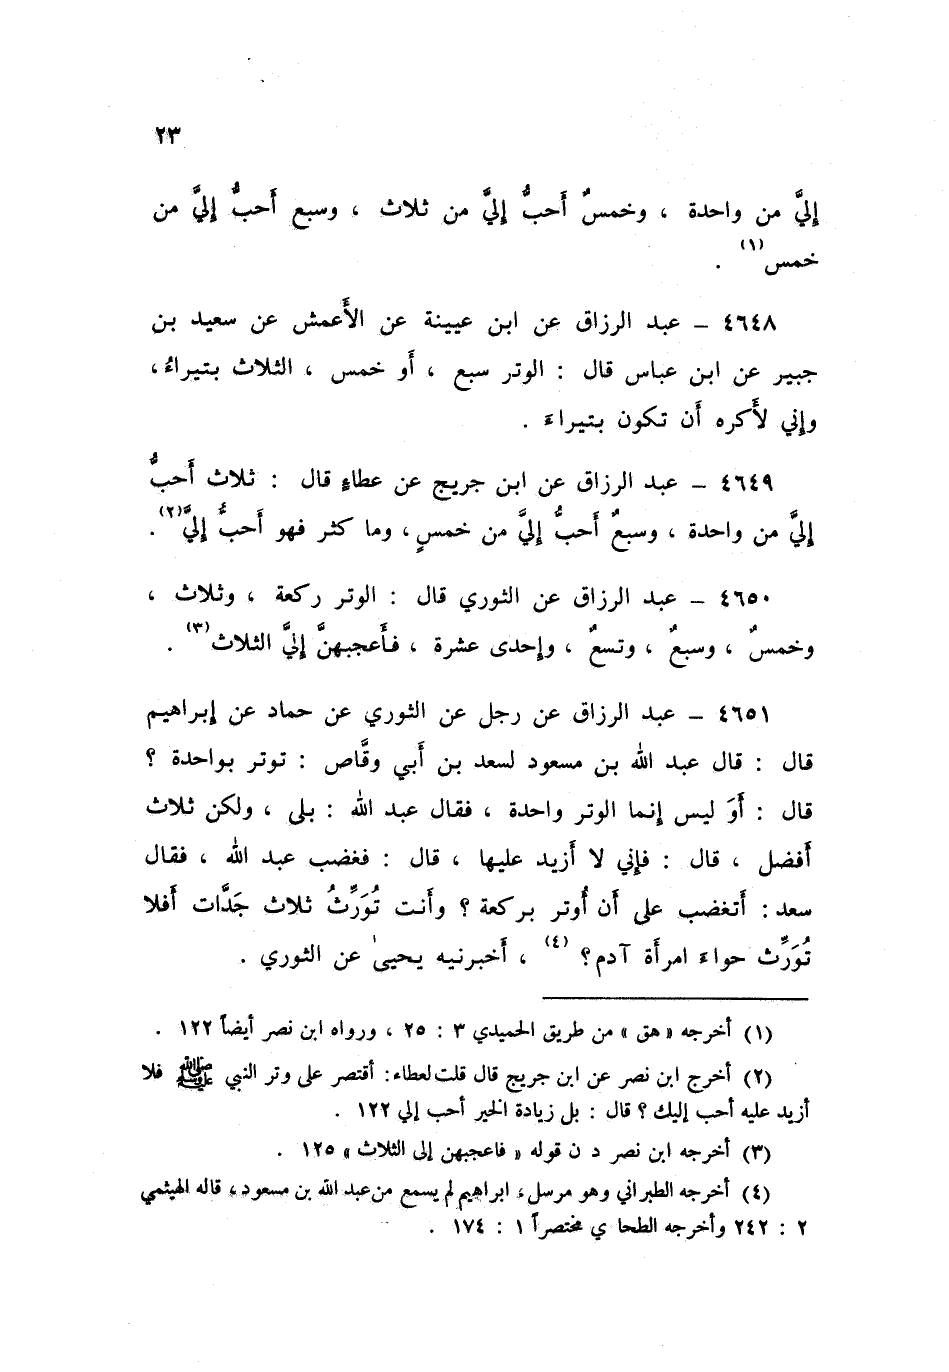 ٢٣
إليَّ من واحدة ، وخمسٌ أَحبُّ إليَّ من ثلاث ، وسبع أَحبُّ إليَّ من
خمس(١) .
٤٦٤٨ – عبد الرزاق عن ابن عيينة عن الأَعمش عن سعيد بن
جبير عن ابن عباس قال : الوتر سبع ، أَو خمس ، الثلاث بتيراءُ ،
وإني لأَكره أَن تكون بتيراءَ .
٤٦٤٩ – عبد الرزاق عن ابن جريج عن عطاءٍ قال : ثلاث أَحبُّ
إليَّ من واحدة ، وسبعٌ أَحبُّ إليَّ من خمسٍ ، وما كثر فهو أَحبُّ إليَّ(٢) .
٤٦٥٠ – عبد الرزاق عن الثوري قال : الوتر ركعة ، وثلاث ،
وخمسٌ ، وسبعٌ ، وتسعٌ ، وإحدى عشرة ، فأَعجبهنَّ إليَّ الثلاث(٣) .
٤٦٥١ – عبد الرزاق عن رجل عن الثوري عن حماد عن إبراهيم
قال : قال عبد الله بن مسعود لسعد بن أَبي وقَّاص : توتر بواحدة ؟
قال : أَوَ ليس إنما الوتر واحدة ، فقال عبد الله : بلى ، ولكن ثلاث
أَفضل ، قال : فإني لا أَزيد عليها ، قال : فغضب عبد الله ، فقال
سعد : أَتغضب على أَن أُوتر بركعة ؟ وأَنت تُوَرِّثُ ثلاث جَدَّات أَفلا
تُوَرِّث حواءَ امرأَة آدم ؟ (٤) ، أَخبرنيه يحيىٰ عن الثوري .
(١) أخرجه « هق » من طريق الحميدي ٣ : ٢٥ ، ورواه ابن نصر أيضاً ١٢٢ .
(٢) أخرج ابن نصر عن ابن جريج قال قلت لعطاء : أقتصر على وتر النبي ﷺ فلا
أزيد عليه أحب إليك ؟ قال : بل زيادة الخير أحب إلي ١٢٢ .
(٣) أخرجه ابن نصر د ن قوله « فاعجبهن إلى الثلاث » ١٢٥ .
(٤) أخرجه الطبراني وهو مرسل ، ابراهيم لم يسمع من عبد الله بن مسعود ، قاله الهيثمي
٢ : ٢٤٢ وأخرجه الطحا ي مختصراً ١ : ١٧٤ .